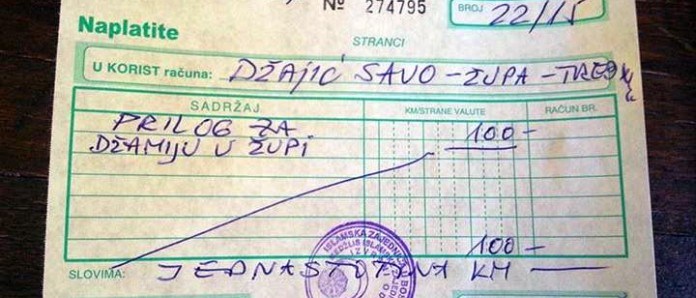 № 274795
BROJ 22/15
Naplatite
STRANCI
U KORIST računa: DŽAJIĆ SAVO - ŽUPA -
SADRŽAJ KM/STRANE VALUTE RAČUN BR.
PRILOG ZA 100-
DŽAMIJU U ŽUPI
ISLAMSKA ZAJEDNICA
100-
SLOVIMA: JEDNASTOTINA KM